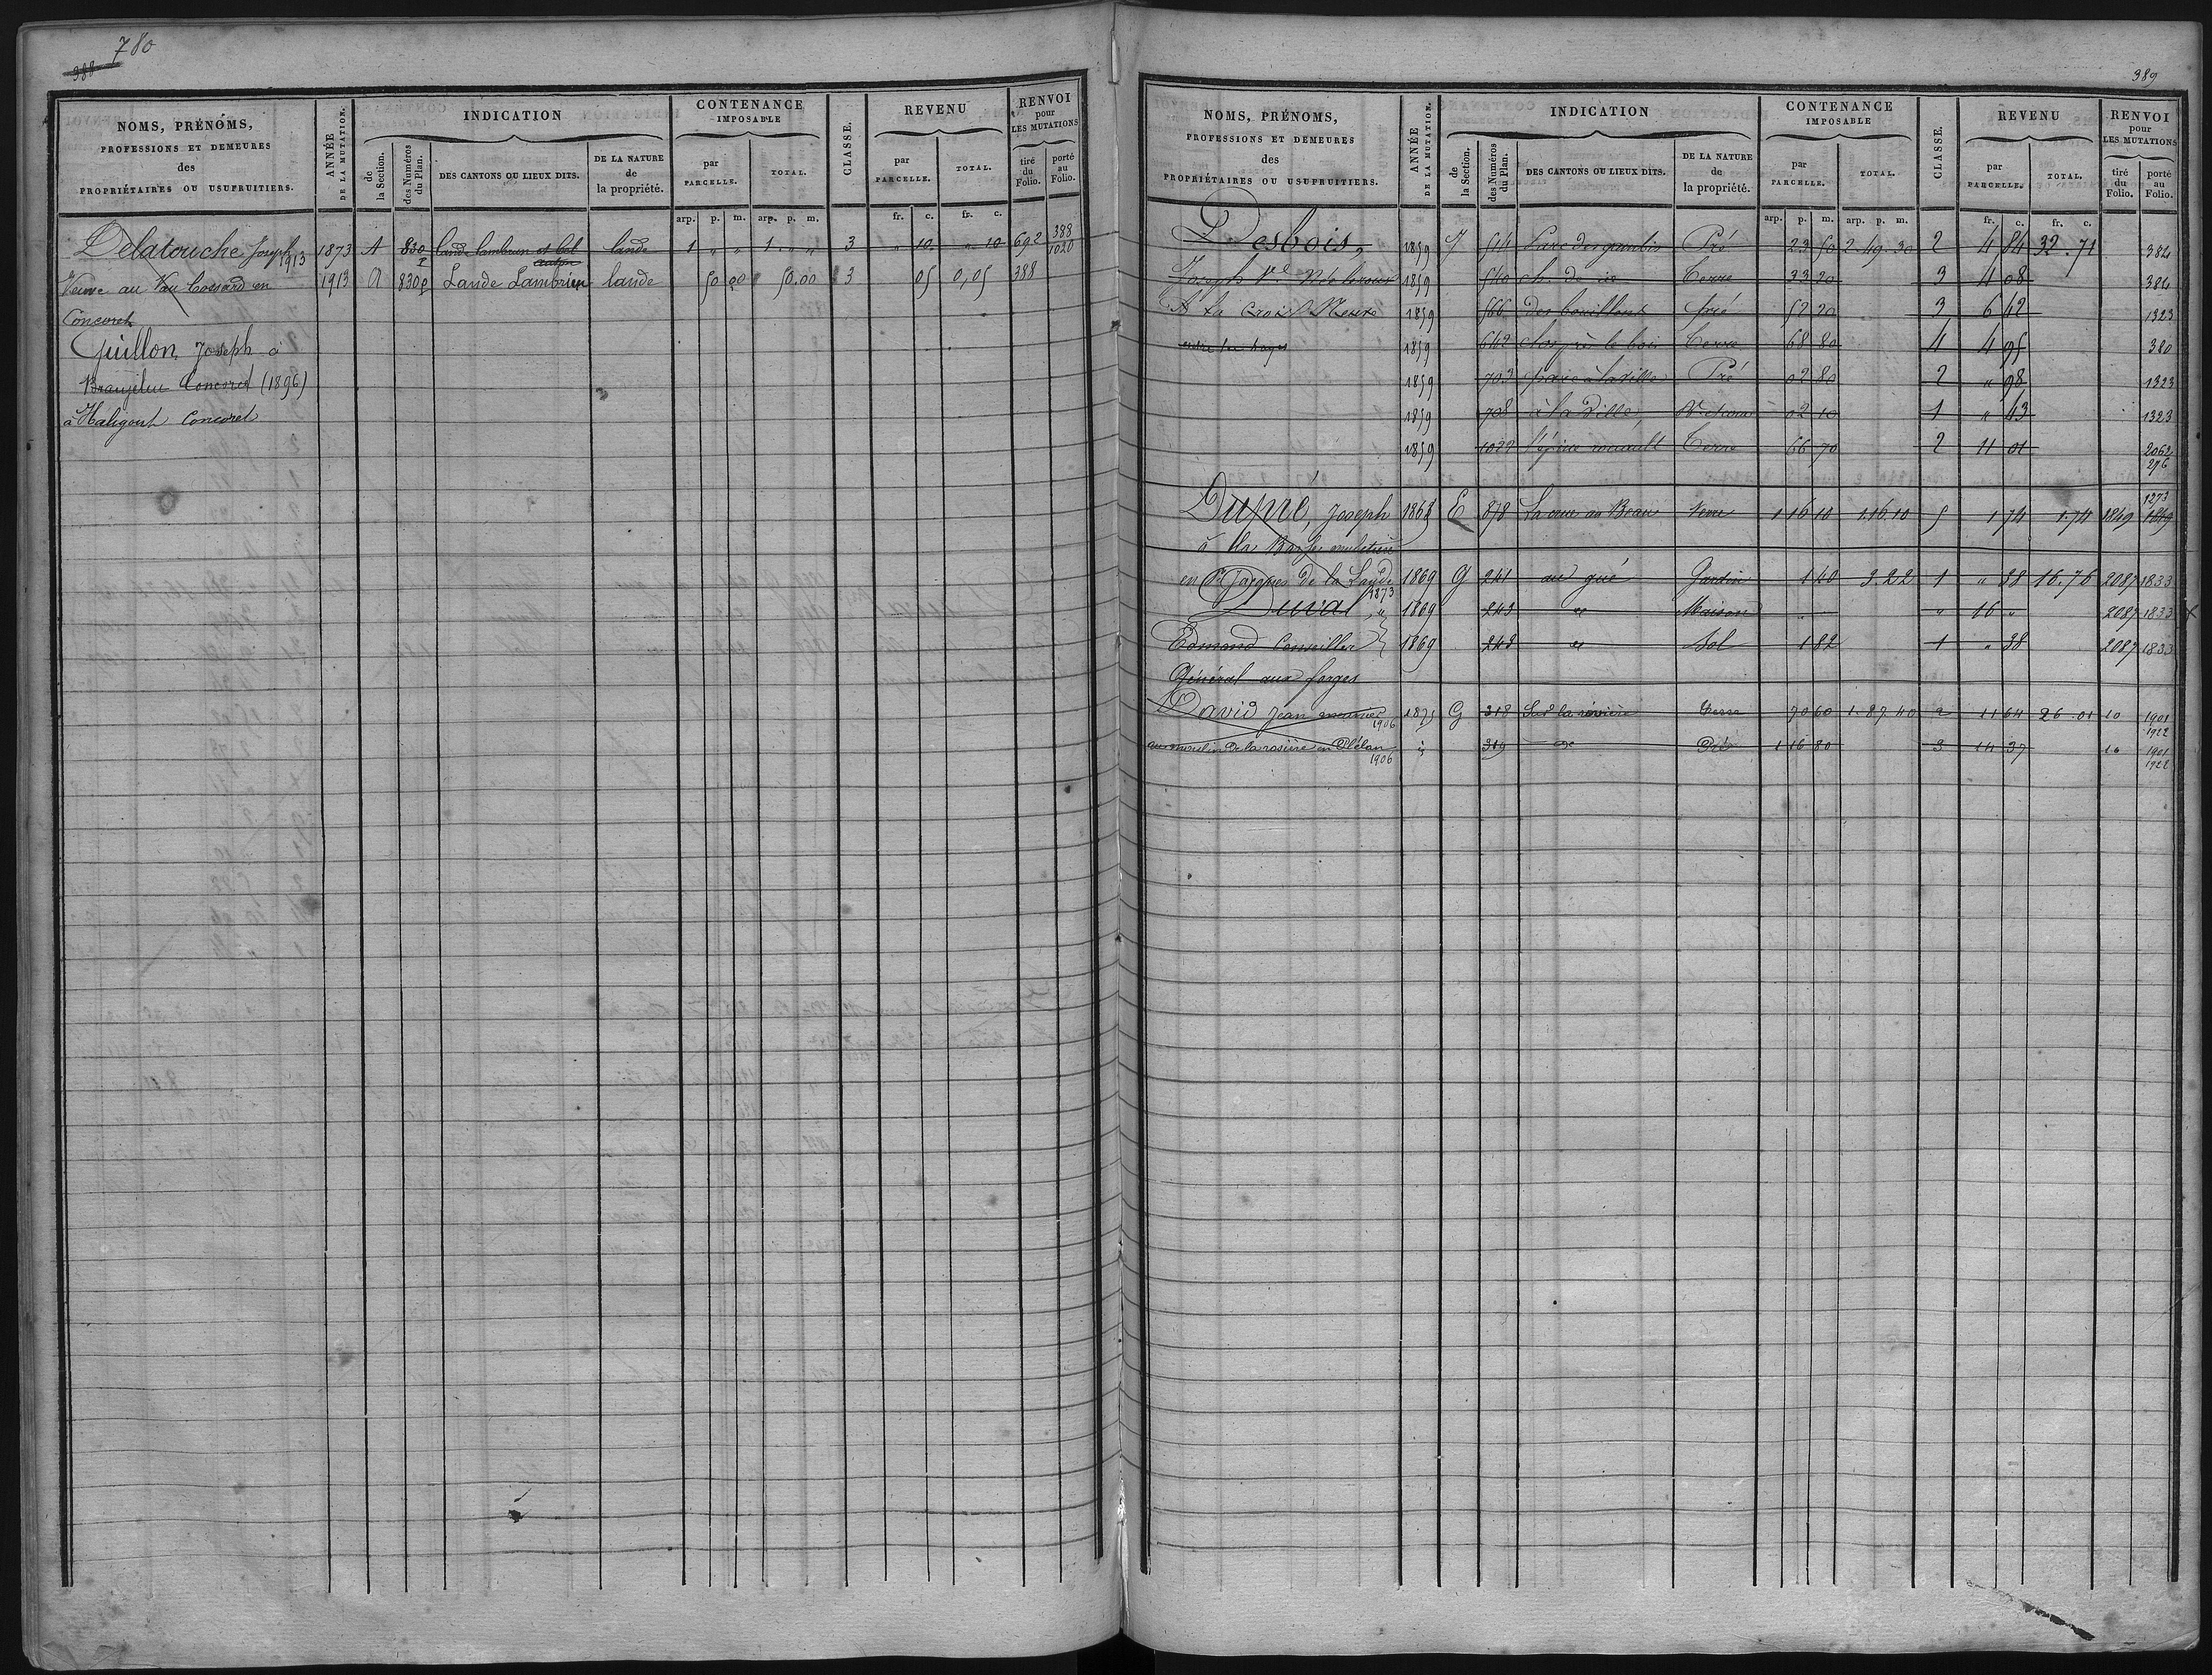 780
388
NOMS, PRÉNOMS,
PROFESSIONS ET DEMEURES
des
PROPRIÉTAIRES OU USUFRUITIERS.
ANNÉE
DE LA MUTATION.
INDICATION
de
la Section.
des Numéros
du Plan.
DES CANTONS OU LIEUX DITS.
DE LA NATURE
de
la propriété.
CONTENANCE
IMPOSABLE
par
PARCELLE.
TOTAL.
CLASSE.
REVENU
par
PARCELLE.
TOTAL.
RENVOI
pour
LES MUTATIONS
tiré
du
Folio.
porté
au
Folio.
arp. p. m. arp. p. m. fr. c. fr. c.
Delatouche Joseph 1873 A 830 p lande lambrun et bel lande 1 " " 1 " " 3 " 10 " 10 692 388
1913 1020
Veuve au Vau Cossard en 1913 A 830p Lande Lambrun lande 50 00 50.00 3 05 0,05 388
Concoret
Guillon, Joseph a
Branjelin Concoret (1896)
à Haligout Concoret
389
NOMS, PRÉNOMS,
PROFESSIONS ET DEMEURES
des
PROPRIÉTAIRES OU USUFRUITIERS.
ANNÉE
DE LA MUTATION.
INDICATION
de
la Section.
des Numéros
du Plan.
DES CANTONS OU LIEUX DITS.
DE LA NATURE
de
la propriété.
CONTENANCE
IMPOSABLE
par
PARCELLE.
TOTAL.
CLASSE.
REVENU
par
PARCELLE.
TOTAL.
RENVOI
pour
LES MUTATIONS
tiré
du
Folio.
porté
au
Folio.
arp. p. m. arp. p. m. fr. c. fr. c.
Desbois, 1859 J 514 Pré 23 50 2.49.30 2 4 84 32.71 384
Joseph 1859 540 Terre 33 20 3 4 08 384
A la Croix 1859 566 des bouillons pré 52 20 3 6 62 1323
1859 642 clos près le bois Terre 68 80 4 4 95 380
1859 703 Pré 02 80 2 " 98 1323
1859 708 à la Ville 02 10 1 " 43 1323
1859 1032 Terre 66 70 2 11 01 2062
276
Dupré, Joseph 1868 E 878 Terre 1 16 10 1.16.10 5 1 74 1.74 1849 1273
1849
à la
en St Jacques de la Lande 1869 G 241 au gué Jardin 1 40 3.22 1 " 38 16.76 2087 1833
1873
Duval, 1869 243 " Maison " 16 " 2087 1833 x
Edmond Conseiller 1869 243 " Sol 1 82 1 " 38 2087 1833
Général aux forges
David Jean meunier 1875 G 318 Sur la rivière Terre 70 60 1.87.40 2 11 64 26.01 10 1901
1906 1922
au moulin de la rosière en Plélan 319 Pré 1 16 80 3 14 37 10 1901
1906 1922